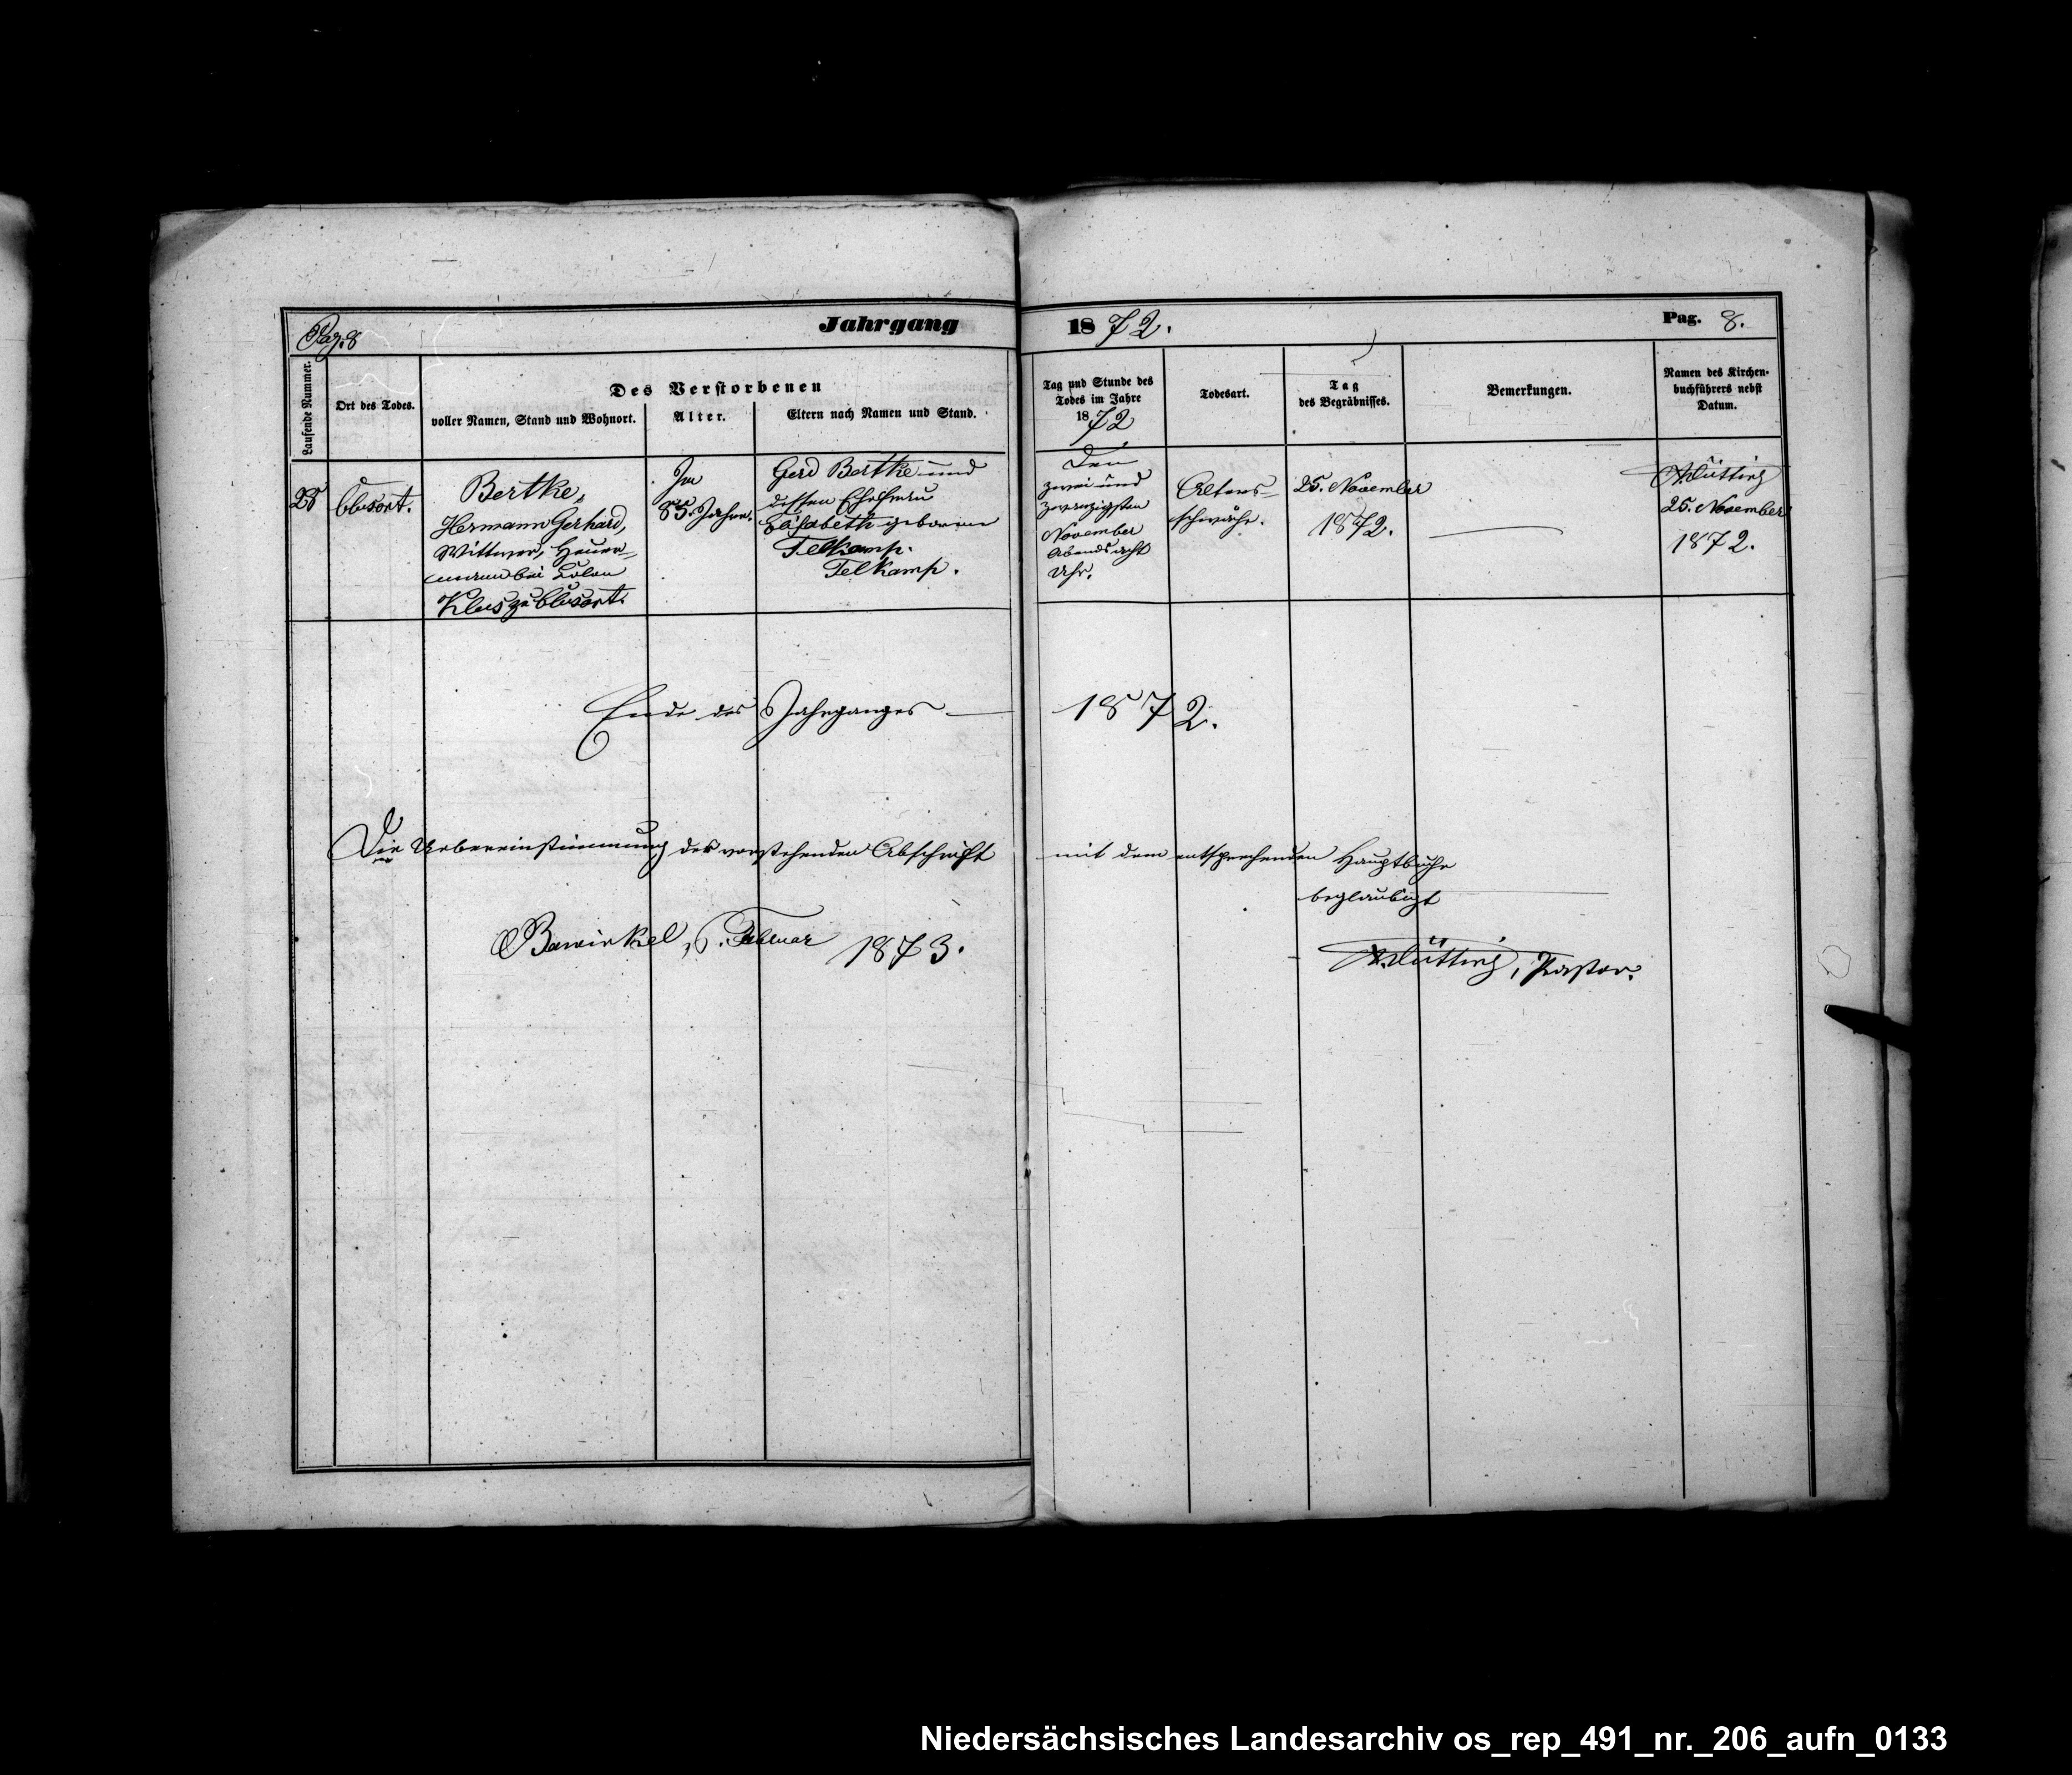 Pag. 8
Jahrgang
1872.
Pag. 8.
Laufende Nummer.
Ort des Todes.
Des Verstorbenen
voller Namen, Stand und Wohnort.
Alter.
Eltern nach Namen und Stand.
Tag und Stunde des
Todes im Jahre
1872
Todesart.
Tag
des Begräbnisses.
Bemerkungen.
Namen des Kirchen-
buchführers nebst
Datum.
28
Clusort.
Bertke,
Hermann Gerhard,
Wittwer, Heuer-
mann bei Colon
Klus zu Clusort.
Im
85. Jahre.
Gerd Bertke und
dessen Ehefrau
Elisabeth geborene
Telkamp.
Telkamp.
Den
zwei und
zwanzigsten
November
Abends acht
Uhr.
Alters-
schwäche.
25. November
1872.
25. November
1872.
Ende des Jahrganges — 1872.
Die Uebereinstimmung der vorstehenden Abschrift mit dem entsprechenden Hauptbuche
beglaubigt
Bawinkel, Februar 1873.
Pastor.
Niedersächsisches Landesarchiv os_rep_491_nr._206_aufn_0133